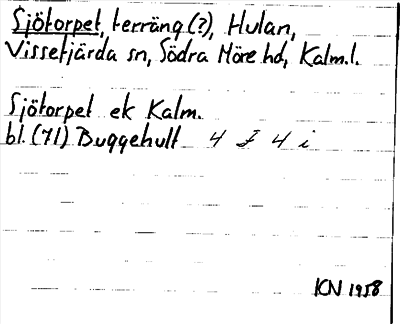 Sjötorpet, terräng (?), Hulan,
Vissefjärda sn, Södra Möre hd, Kalm.l.
Sjötorpet ek Kalm.
bl. (71) Buggehult 4 F 4 i
KN 1958